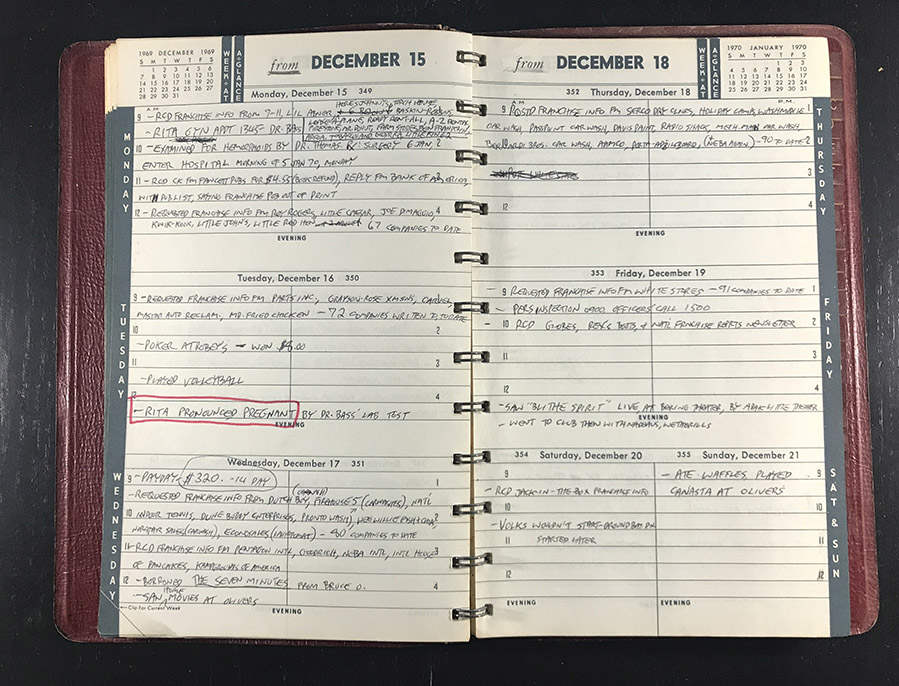 1969 DECEMBER 1969
S M T W T F S
1 2 3 4 5 6
7 8 9 10 11 12 13
14 15 16 17 18 19 20
21 22 23 24 25 26 27
28 29 30 31
WEEK-AT
A-GLANCE
from DECEMBER 15
Monday, December 15 349
MONDAY
A.M.
9 - RCD FRANCHISE INFO FROM 7-11, LI'L ABNER
BASKIN-ROBBINS
- RITA GYN APPT 1345 DR. BASS
10 - EXAMINED FOR HEMOROIDS BY DR. THOMAS SURGERY 6 JAN, 2
ENTER HOSPITAL MORNING OF 5 JAN 70, MONDAY
11 - RCD CK FM FAWCETT PUBS FOR $4.95 (BOOK REFUND), REPLY FM BANK OF AMERICA, 3
WITH PUB LIST, SAYING FRANCHISE PUB OUT OF PRINT
12 - REQUESTED FRANCHISE INFO FM ROY ROGERS, LITTLE CAESAR, JOE DIMAGGIO, 4
KWIK-KOOK, LITTLE JOHN'S, LITTLE RED HEN 67 COMPANIES TO DATE
EVENING
Tuesday, December 16 350
TUESDAY
9 - REQUESTED FRANCHISE INFO FM PARTS INC, GRAYSON-ROSE XMSNS, CARVEL, 1
MASTER AUTO RECLAIM, MR. FRIED CHICKEN - 72 COMPANIES WRITTEN TO TO DATE
10 2
- POKER AT ROBEY'S - WON
11 3
- PLAYED VOLLEYBALL
12 4
- RITA PRONOUNCED PREGNANT BY DR. BASS' LAB TEST
EVENING
Wednesday, December 17 351
WEDNESDAY
9 - PAYDAY $320. - 14 DAY) 1
- REQUESTED FRANCHISE INFO FROM DUTCH BOY, NAT'L
10 INDOOR TENNIS, DUNE BUGGY ENTERPRISES, PRONTO WASH, 2
- 80 COMPANIES TO DATE
11 - RCD FRANCHISE INFO FM PENTAGON INTL, GOODRICH, NCBA INTL, INTL HOUSE 3
OF PANCAKES, KAMPGROUNDS OF AMERICA
12 - BORROWED THE SEVEN MINUTES FROM BRUCE O. 4
- SAW HOME MOVIES AT OLIVERS
Clip For Current Week
EVENING
from DECEMBER 18
WEEK-AT
A-GLANCE
1970 JANUARY 1970
S M T W T F S
1 2 3
4 5 6 7 8 9 10
11 12 13 14 15 16 17
18 19 20 21 22 23 24
25 26 27 28 29 30 31
352 Thursday, December 18
THURSDAY
P.M.
9 RQSTD FRANCHISE INFO FM SERVCO DRY CLNRS, HOLIDAY CAMPS, WASHMOBILE 1
CAR WASH, PASSPOINT CAR WASH, DAVIS PAINT, RADIO SHACK, CAR WASH,
10 BERNARDI BROS. CAR WASH, AAMCO, (+ NCBA AGAIN) - 90 TO DATE 2
3
12 4
EVENING
353 Friday, December 19
FRIDAY
9 - REQUESTED FRANCHISE INFO FM WHITE STORES - 91 COMPANIES TO DATE 1
- PERS INSPECTION 0900 OFFICERS CALL 1500
- 10 RCD GLOBES, REX'S BOOTS, & NAT'L FRANCHISE REPORTS NEWSLETTER 2
11 3
12 4
- SAW "BLITHE SPIRIT" LIVE, AT BERING THEATER, BY ADAK LITTLE THEATER
EVENING
- WENT TO CLUB THEN WITH WETHERILLS
354 Saturday, December 20
9
- RCD JACK-IN-THE-BOX FRANCHISE INFO
10
- VOLKS WOULDN'T START
11 STARTED LATER
12
EVENING
355 Sunday, December 21
SAT & SUN
- ATE WAFFLES, PLAYED 9
CANASTA AT OLIVERS
10
11
12
EVENING